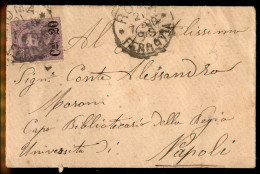 Cmi 20
FERROVIA
Al
Sigr Conte Alessandro
Moroni
Capo Bibliotecario della Regia
Università di
Napoli